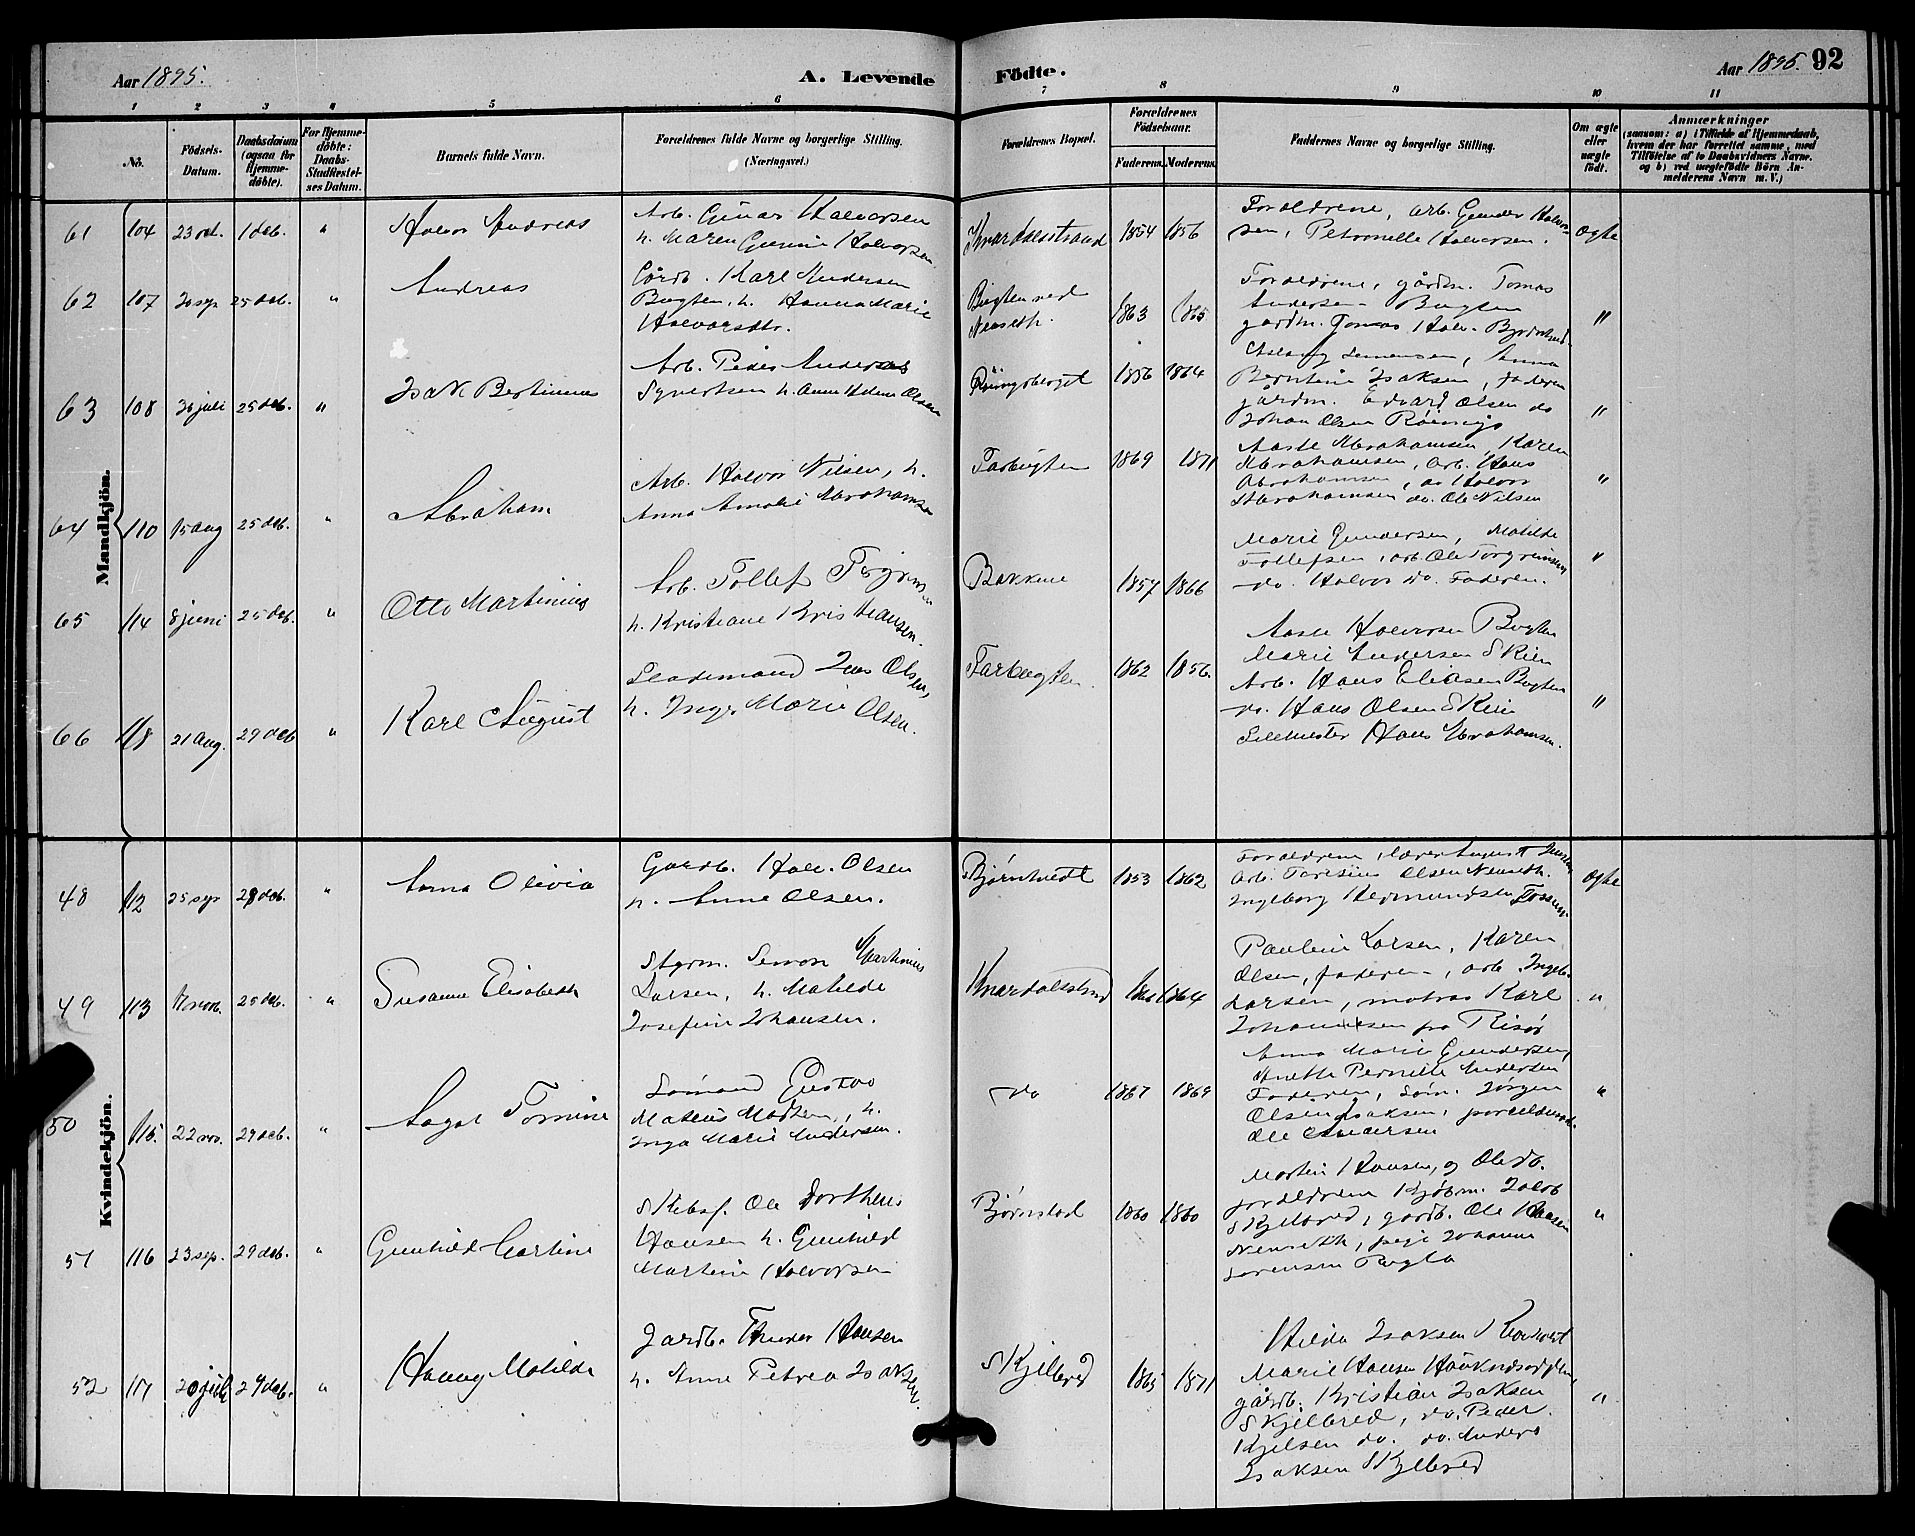 Aar 1895. A. Levende Födte. Aar 1895. 92
1 2 3 4 5 6 7 8 9 10 11
No. Födsels-Datum. Daabsdatum (ogsaa for Hjemme-döbte). For Hjemme-döbte: Daabs-Stadfæstel-ses Datum. Barnets fulde Navn. Forældrenes fulde Navne og borgerlige Stilling. (Næringsvei.) Forældrenes Bopæl. Forældrenes Födselsaar. Faderens. Moderens. Faddernes Navne og borgerlige Stilling. Om ægte eller uægte födt. Anmærkninger (saasom: a) i Tilfælde af Hjemmedaab, hvem der har forrettet samme, med Tilföielse af to Daabsvidners Navne, og b) ved uægtefödte Börn An-melderens Navn m. V.)
Mandkjön.
61 104 23 okt. 1 deb. " Halvor Andreas
Arb. Gunar Halvorsen
h. Maren Gurine Halvorsen.
Knardalsstrand 1854 1856
Forældrene, arb. Gunder Halvor-
sen, Petronelle Halvorsen. Ægte
62 107 20 sep 25 deb. " Andreas
Gårdb. Karl Andersen
Bugten, h. Hanna Marie
Halvorsdtr.
Bugten ved
Nenseth. 1863 1865
Forældrene, gårdm. Tomas
Andersen Bugten
gårdm. Tomas Halv. "
63 108 30 juli 25 deb. " Isak Bertinius
Arb. Peder Anderas
Syvertsen h. Anne Helene Olsen
1856 1864
Anna
Berntine Isaksen, faderen
gårdm. Edvard Olsen do
Johan Olsen "
64 110 15 aug 25 deb. " Abraham
Arb. Halvor Nilsen, h.
Anna Amalie Abrahamsen
Farbugten 1869 1871
Aaste Abrahamsen, Karen
Abrahamsen, arb. Hans
Abrahamsen, do Halvor
Abrahamsen do. Ole Nilsen "
65 114 8 juni 25 deb. " Otto Martinius
Arb. Tollef
h. Kristiane Kristiansen.
Bakkene 1857 1866
Marie Gundersen, Matilde
Tollefsen, arb. Ole Torgrimsen
do. Halvor do. Faderen. "
66 118 21 aug. 29 deb " Karl August
Olsen,
h. Inger Marie Olsen.
Farbugten. 1862 1856.
Aaste Halvorsen Bugten
Marie Andersen Skien
Arb. Hans Eliasen Bugten
do. Hans Olsen Skien
Hans Abrahamsen. "
Kvindekjön.
48 112 25 sep 29 deb. " Anna Olivia
Gårdb. Halv. Olsen
h. Anne Olsen.
Bjørntvedt 1853 1862
Forældrene, August
Arb. Olsen Nenseth.
Ingeborg Hermundsen Fossum. Ægte
49 113 17 nov. 25 deb. " Susanne Elisabeth
Styrm. Simon Martinius
Larsen, h. Matilde
Josefine Johansen.
Knardalsstrand 1860 1864
Pauline Larsen, Karen
Olsen, faderen, arb. Ingeb.
Larsen, matros Karl
Johannesen fra Risør "
50 115. 22 nov. 29 deb. " Aagot Tomine
Sømand Gustav
Mateus Madsen, h.
Inga Marie Andersen.
do 1867 1869
Anna Marie Gundersen,
Anette Pernille Andersen
Faderen, søm. Jørgen
Olsen Isaksen,
Ole Andersen "
51 116 23 sep. 29 deb. " Gunhild Martine
Skibsf. Ole Dortheus
Hansen h. Gunhild
Martine Halvorsen
Bjørnstad 1860 1860
Martin Hansen, og Ole do.
forældrene Kjøbm. Jacob
Skjelbred, gårdb. Ole Hansen
Nenseth, pige Johanne
Sørensen "
52 117 20 juli 29 deb. " Hanny Matilde
Gårdb. Hansen
h. Anne Petrea Isaksen.
Skjelbred 1865 1871
Hilda Isaksen
Marie Hansen
gårdb. Kristian Isaksen
Skjelbred, do. Peder
Kjelsen do. do. Anders
Isaksen Skjelbred "